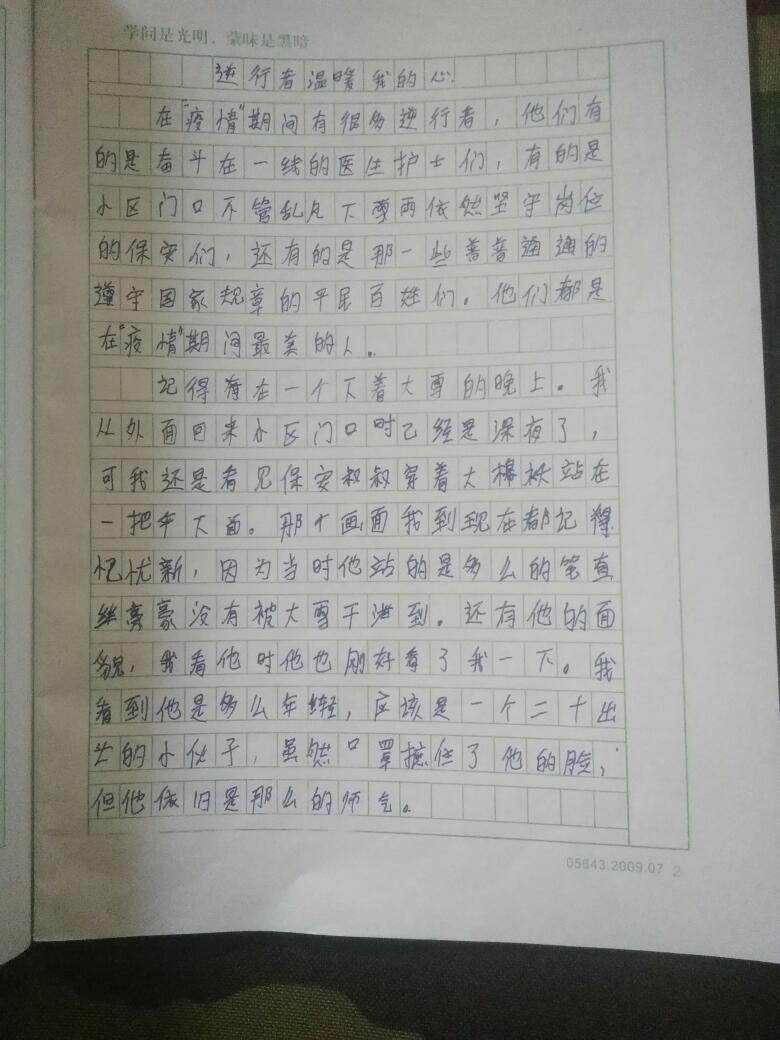 学问是光明，蒙昧是黑暗
逆行者温暖我的心.
在“疫情”期间有很多逆行者，他们有
的是奋斗在一线的医生护士们，有的是
小区门口不管乱风下雪雨依然坚守岗位
的保安们，还有的是那一些普普通通的
遵守国家规章的平民百姓们。他们都是
在“疫情”期间最美的人。
记得有在一个下着大雪的晚上。我
从外面回来小区门口时已经是深夜了，
可我还是看见保安叔叔穿着大棉袄站在
一把伞下面。那个画面我到现在都记得
忆忧新，因为当时他站的是多么的笔直
丝毫没有被大雪干泄到。还有他的面
貌，我看他时他也刚好看了我一下。我
看到他是多么年轻，应该是一个二十出
头的小伙子，虽然口罩掩住了他的脸，
但他依旧是那么的帅气。
05643.2009.07 2